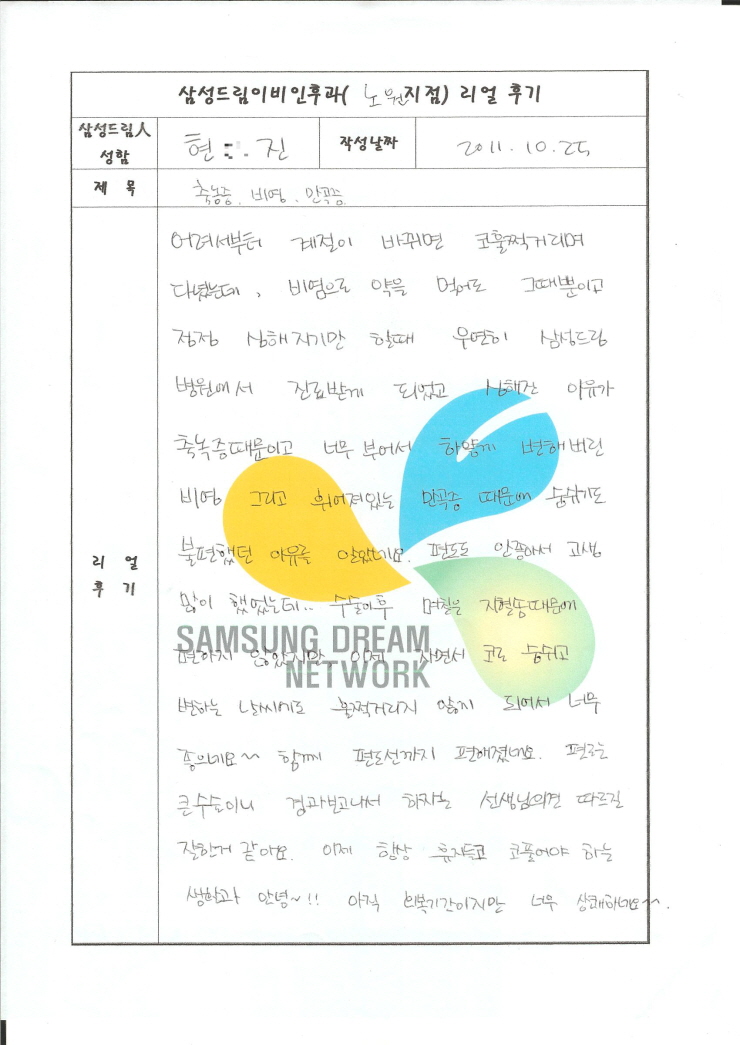 삼성드림이비인후과( 노원지점) 리얼 후기
삼성드림人 성함
현 진
작성날짜
2011. 10. 25
제 목
축농증. 비염. 만곡증
리 얼 후 기
어려서부터 계절이 바뀌면 코훌쩍거리며
다녔는데, 비염으로 약을 먹어도 그때뿐이고
점점 심해지기만 할때 우연히 삼성드림
병원에서 진료받게 되었고 심해진 이유가
축녹증때문이고 너무 부어서 하얗게 변해버린
비염 그리고 휘어져있는 만곡증 때문에 숨쉬기도
불편했던 이유를 알았네요. 편도도 안좋아서 고생
많이 했었는데.. 수술이후 며칠은 지혈솜때문에
편하지 않았지만 이제 자면서 코로 숨쉬고
변하는 날씨에도 훌쩍거리지 않게 되어서 너무
좋으네요~ 함께 편도선까지 편해졌네요. 편도는
큰수술이니 경과보고나서 하자는 선생님의견 따르길
잘한거 같아요. 이제 항상 휴지들고 코풀어야 하는
생활과 안녕~!! 아직 회복기간이지만 너무 상쾌하네요~.
SAMSUNG DREAM
NETWORK